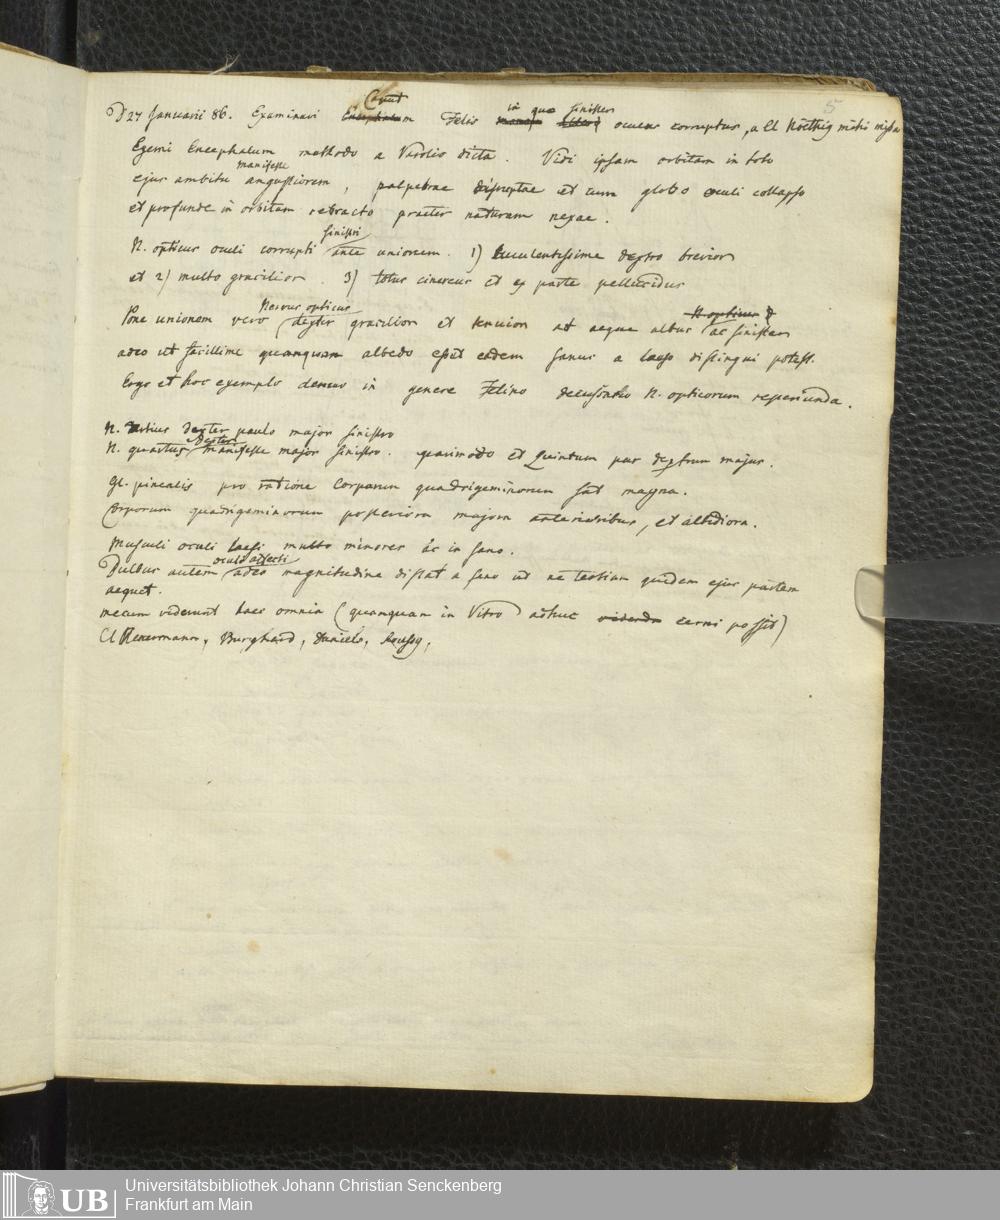 5
D 27 Januarii 86. Examinavi Caput Felis in quo sinister oculus corruptus, a Cl Noethig mihi
Exemi Encephalum methodo a Varolio dicta. Vidi ipsam orbitam in toto
ejus ambitu manifeste angustiorem, palpebrae et cum globo oculi collapso
et profunde in orbitam retracto praeter naturam nexae.
N. opticus oculi corrupti sinistri ante unionem. 1) Luculentissime dextro brevior
et 2) multo gracilior. 3) totus cinereus et ex parte pellucidus
Pone unionem vero Nervus opticus dexter gracilior et tenuior at aeque albus ac sinister
adeo ut facillime quamquam albedo esset eadem sanus a laeso distingui potest.
Ergo et hoc exemplo denuo in genere Felino decussatio N. opticorum reperiunda.
N. tertius dexter paulo major sinistro
N. quartus dexter manifeste major sinistro. quasimodo et Quintum par dextrum majus.
Gl. pinealis pro ratione Corporum quadrigeminorum sat magna.
Corporum quadrigeminorum posteriora majora anterioribus, et albidiora.
Musculi oculi laesi multo minores ac in sano.
Bulbus autem oculi affecti adeo magnitudine distat a sano ut ne tertiam quidem ejus partem
aequet.
mecum viderunt haec omnia (quamquam in Vitro adhuc cerni possit)
Cl Ackermann, Burghard, Daniels,
Universitätsbibliothek Johann Christian Senckenberg
Frankfurt am Main
UB